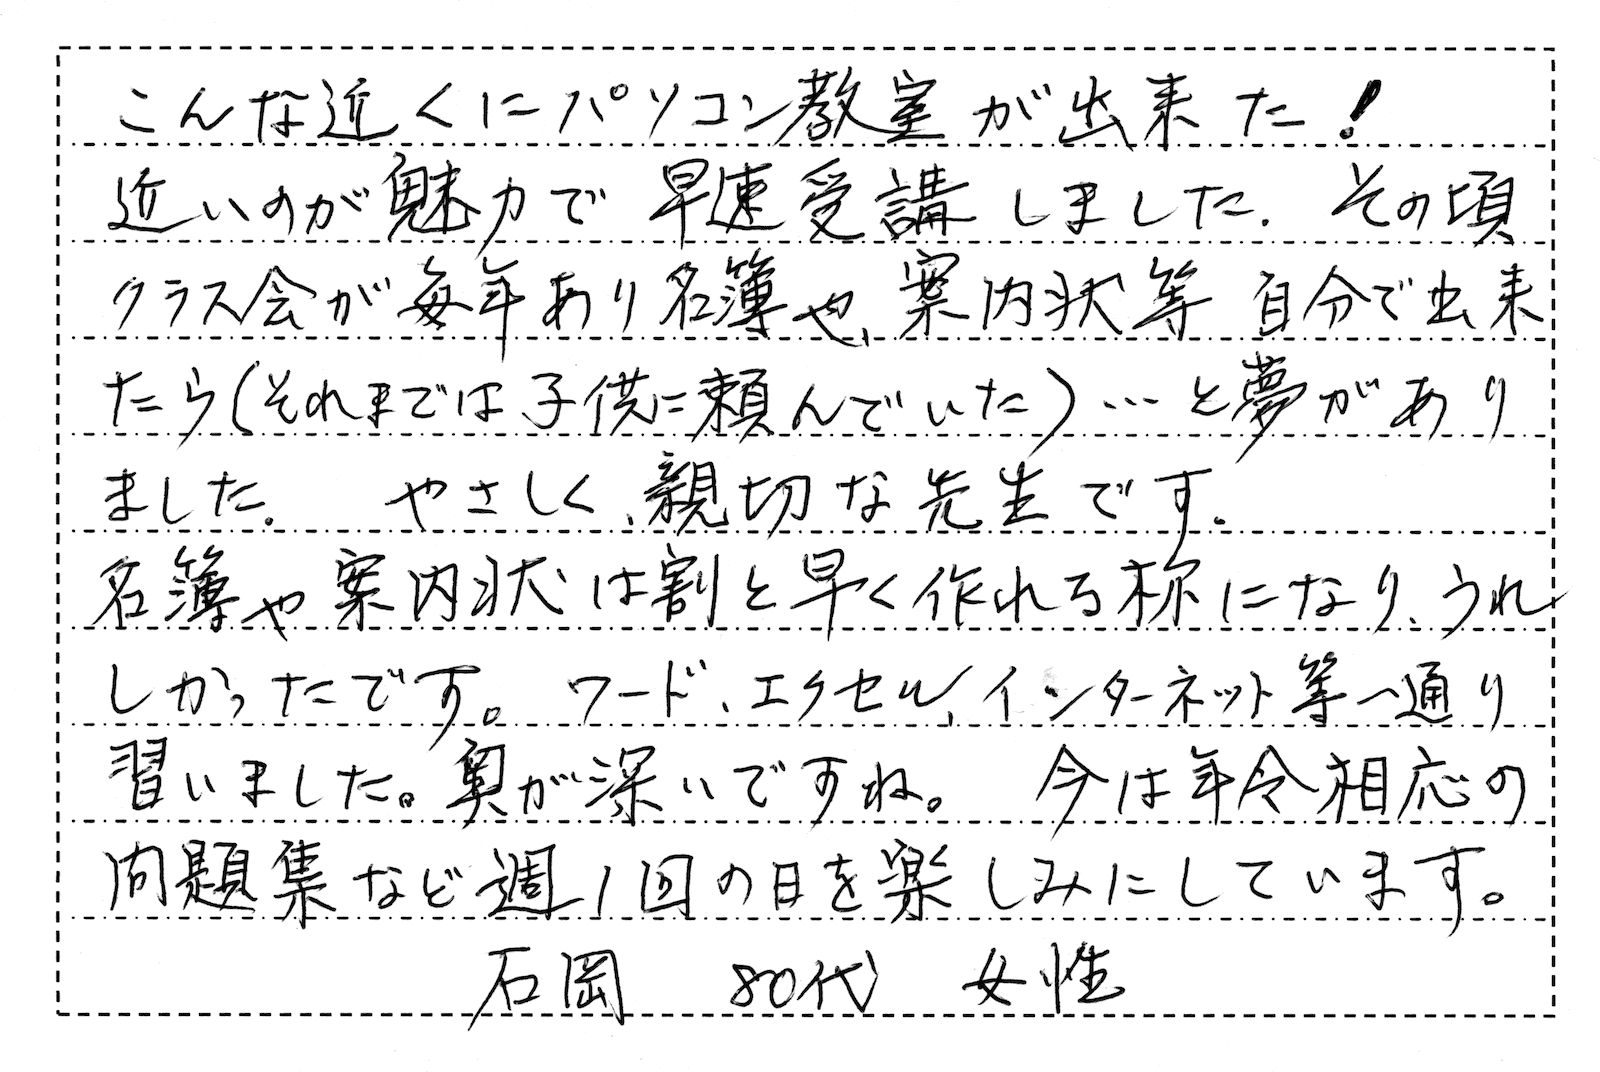 こんな近くにパソコン教室が出来た!
近いのが魅力で早速受講しました。その頃
クラス会が毎年あり名簿や、案内状等自分で出来
たら(それまでは子供に頼んでいた)…と夢があり
ました。 やさしく、親切な先生です。
名簿や案内状は割と早く作れる様になり、うれ
しかったです。ワード、エクセル、インターネット等一通り
習いました。奥が深いですね。 今は年令相応の
問題集など週1回の日を楽しみにしています。
石岡 80代 女性